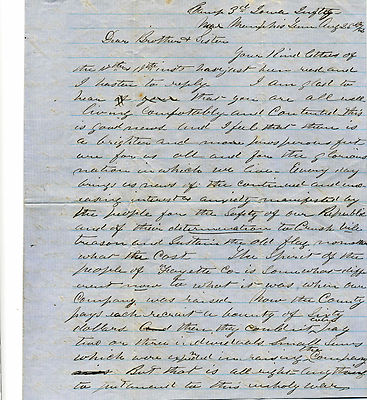 Camp 3rd Iowa Infty
Near Memphis Tenn Aug 25th/62
Dear Brother & Sister
Your Kind letters of
the inst has just been recd and
I hasten to reply I am glad to
hear that you are all well
living Comfortably and Contented this
is good news and I feel that there is
a brighter and more prosperous fut
ure for us all and for the glorious
nation in which we live. Every day
brings us news of the continued and inc
reasing interest & anxiety manifested by
the people for the Safety of our Republic
and of their determination to Crush vile
treason and Sustain the old flag no matter
what the Cost The Spirit of the
people of Fayette Co is Somewhat diff
erent now to what it was when our
Company was raised Now the County
pays each recruit a bounty of Sixty
dollars then they couldnt even pay
two or three individuals Small Sums
which were expended in raising the Company
But that is all right anything
to put an end to this unholy war